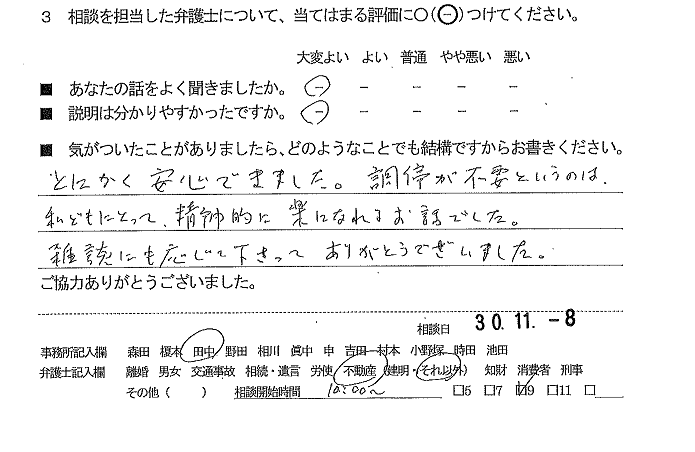 3 相談を担当した弁護士について、当てはまる評価に○(－)つけてください。
大変よい よい 普通 やや悪い 悪い
■ あなたの話をよく聞きましたか。 － － － － －
■ 説明は分かりやすかったですか。 － － － － －
■ 気がついたことがありましたら、どのようなことでも結構ですからお書きください。
とにかく安心できました。調停が不要というのは、
私どもにとって、精神的に楽になれるお話でした。
雑談にも応じて下さって ありがとうございました。
ご協力ありがとうございました。
相談日 30.11.-8
事務所記入欄 森田 榎本 田中 野田 相川 眞中 申 吉田 村本 小野塚 時田 池田
弁護士記入欄 離婚 男女 交通事故 相続・遺言 労使 不動産 (建明・それ以外) 知財 消費者 刑事
その他( ) 相談開始時間 10:00～ □5 □7 □9 □11 □